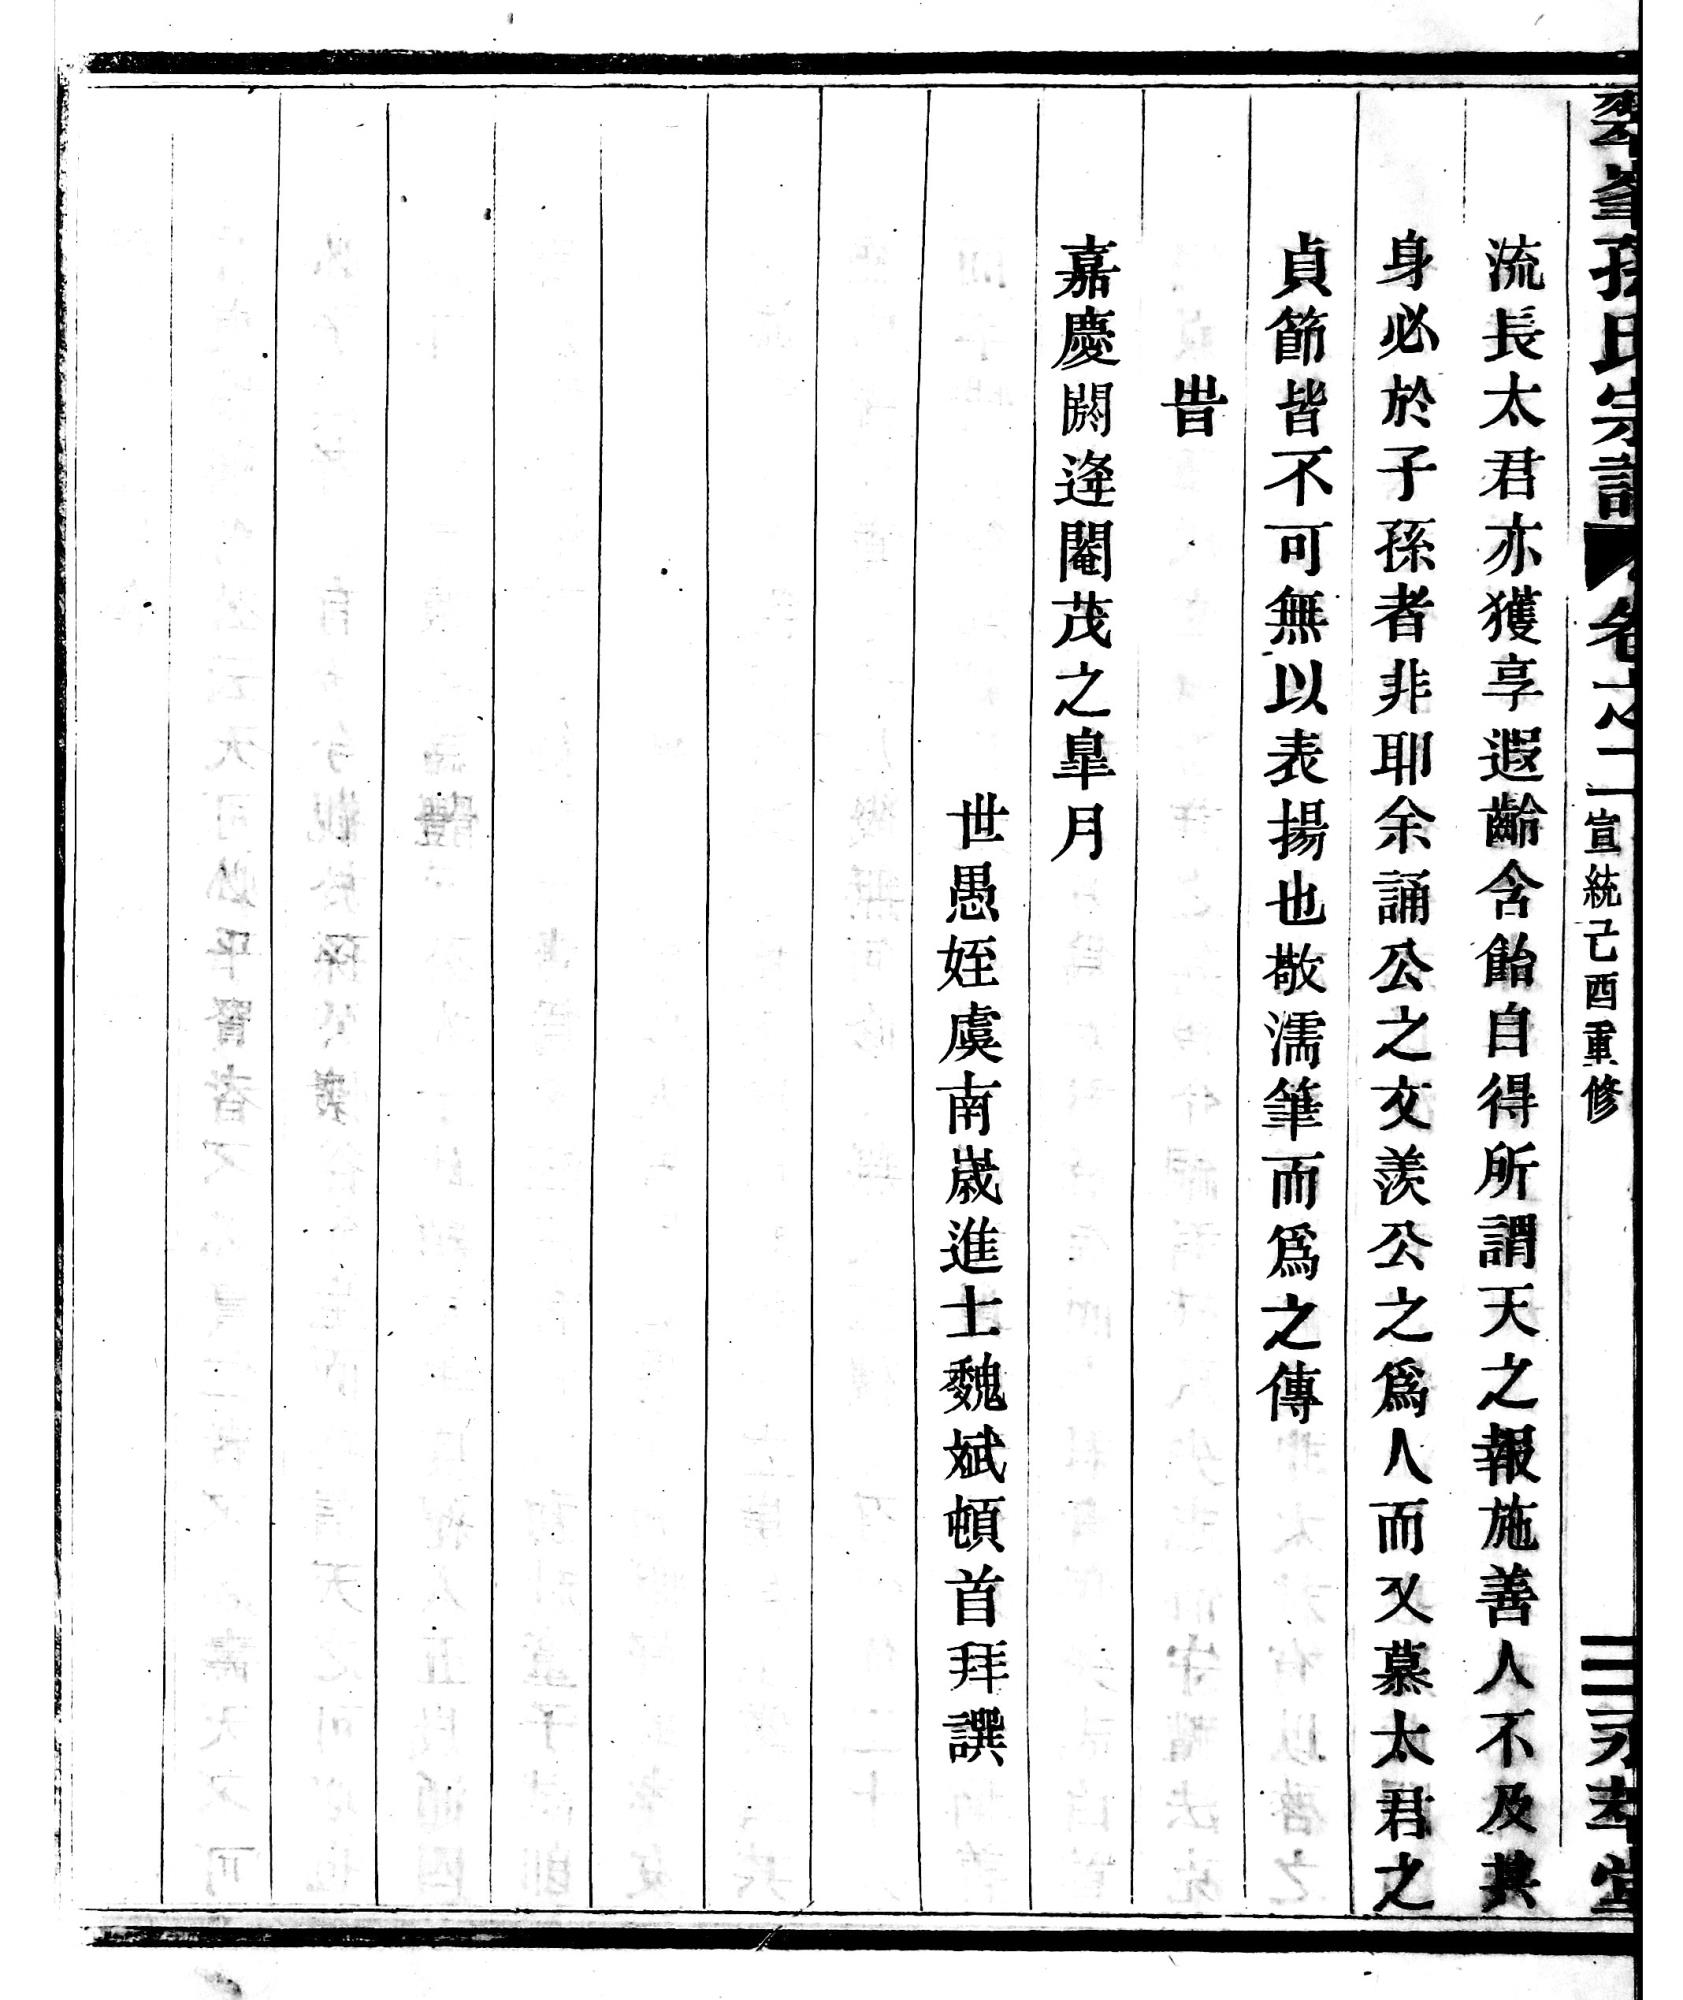 翠峯孫氏宗譜 卷之二 宣統己酉重修 二 永孝堂
流長太君亦獲享遐齡含飴自得所謂天之報施善人不及其
身必於子孫者非耶余誦公之文羨公之爲人而又慕太君之
貞節皆不可無以表揚也敬濡筆而爲之傳
旹
嘉慶閼逢閹茂之皐月
世愚姪虞南歲進士魏斌頓首拜譔